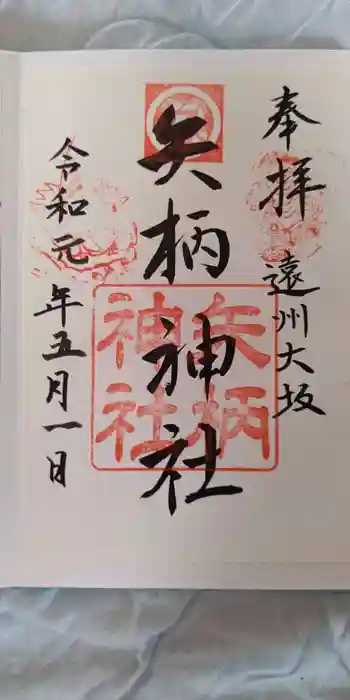 奉拝
遠州大坂
矢柄神社
矢柄
神社
令和元年五月一日